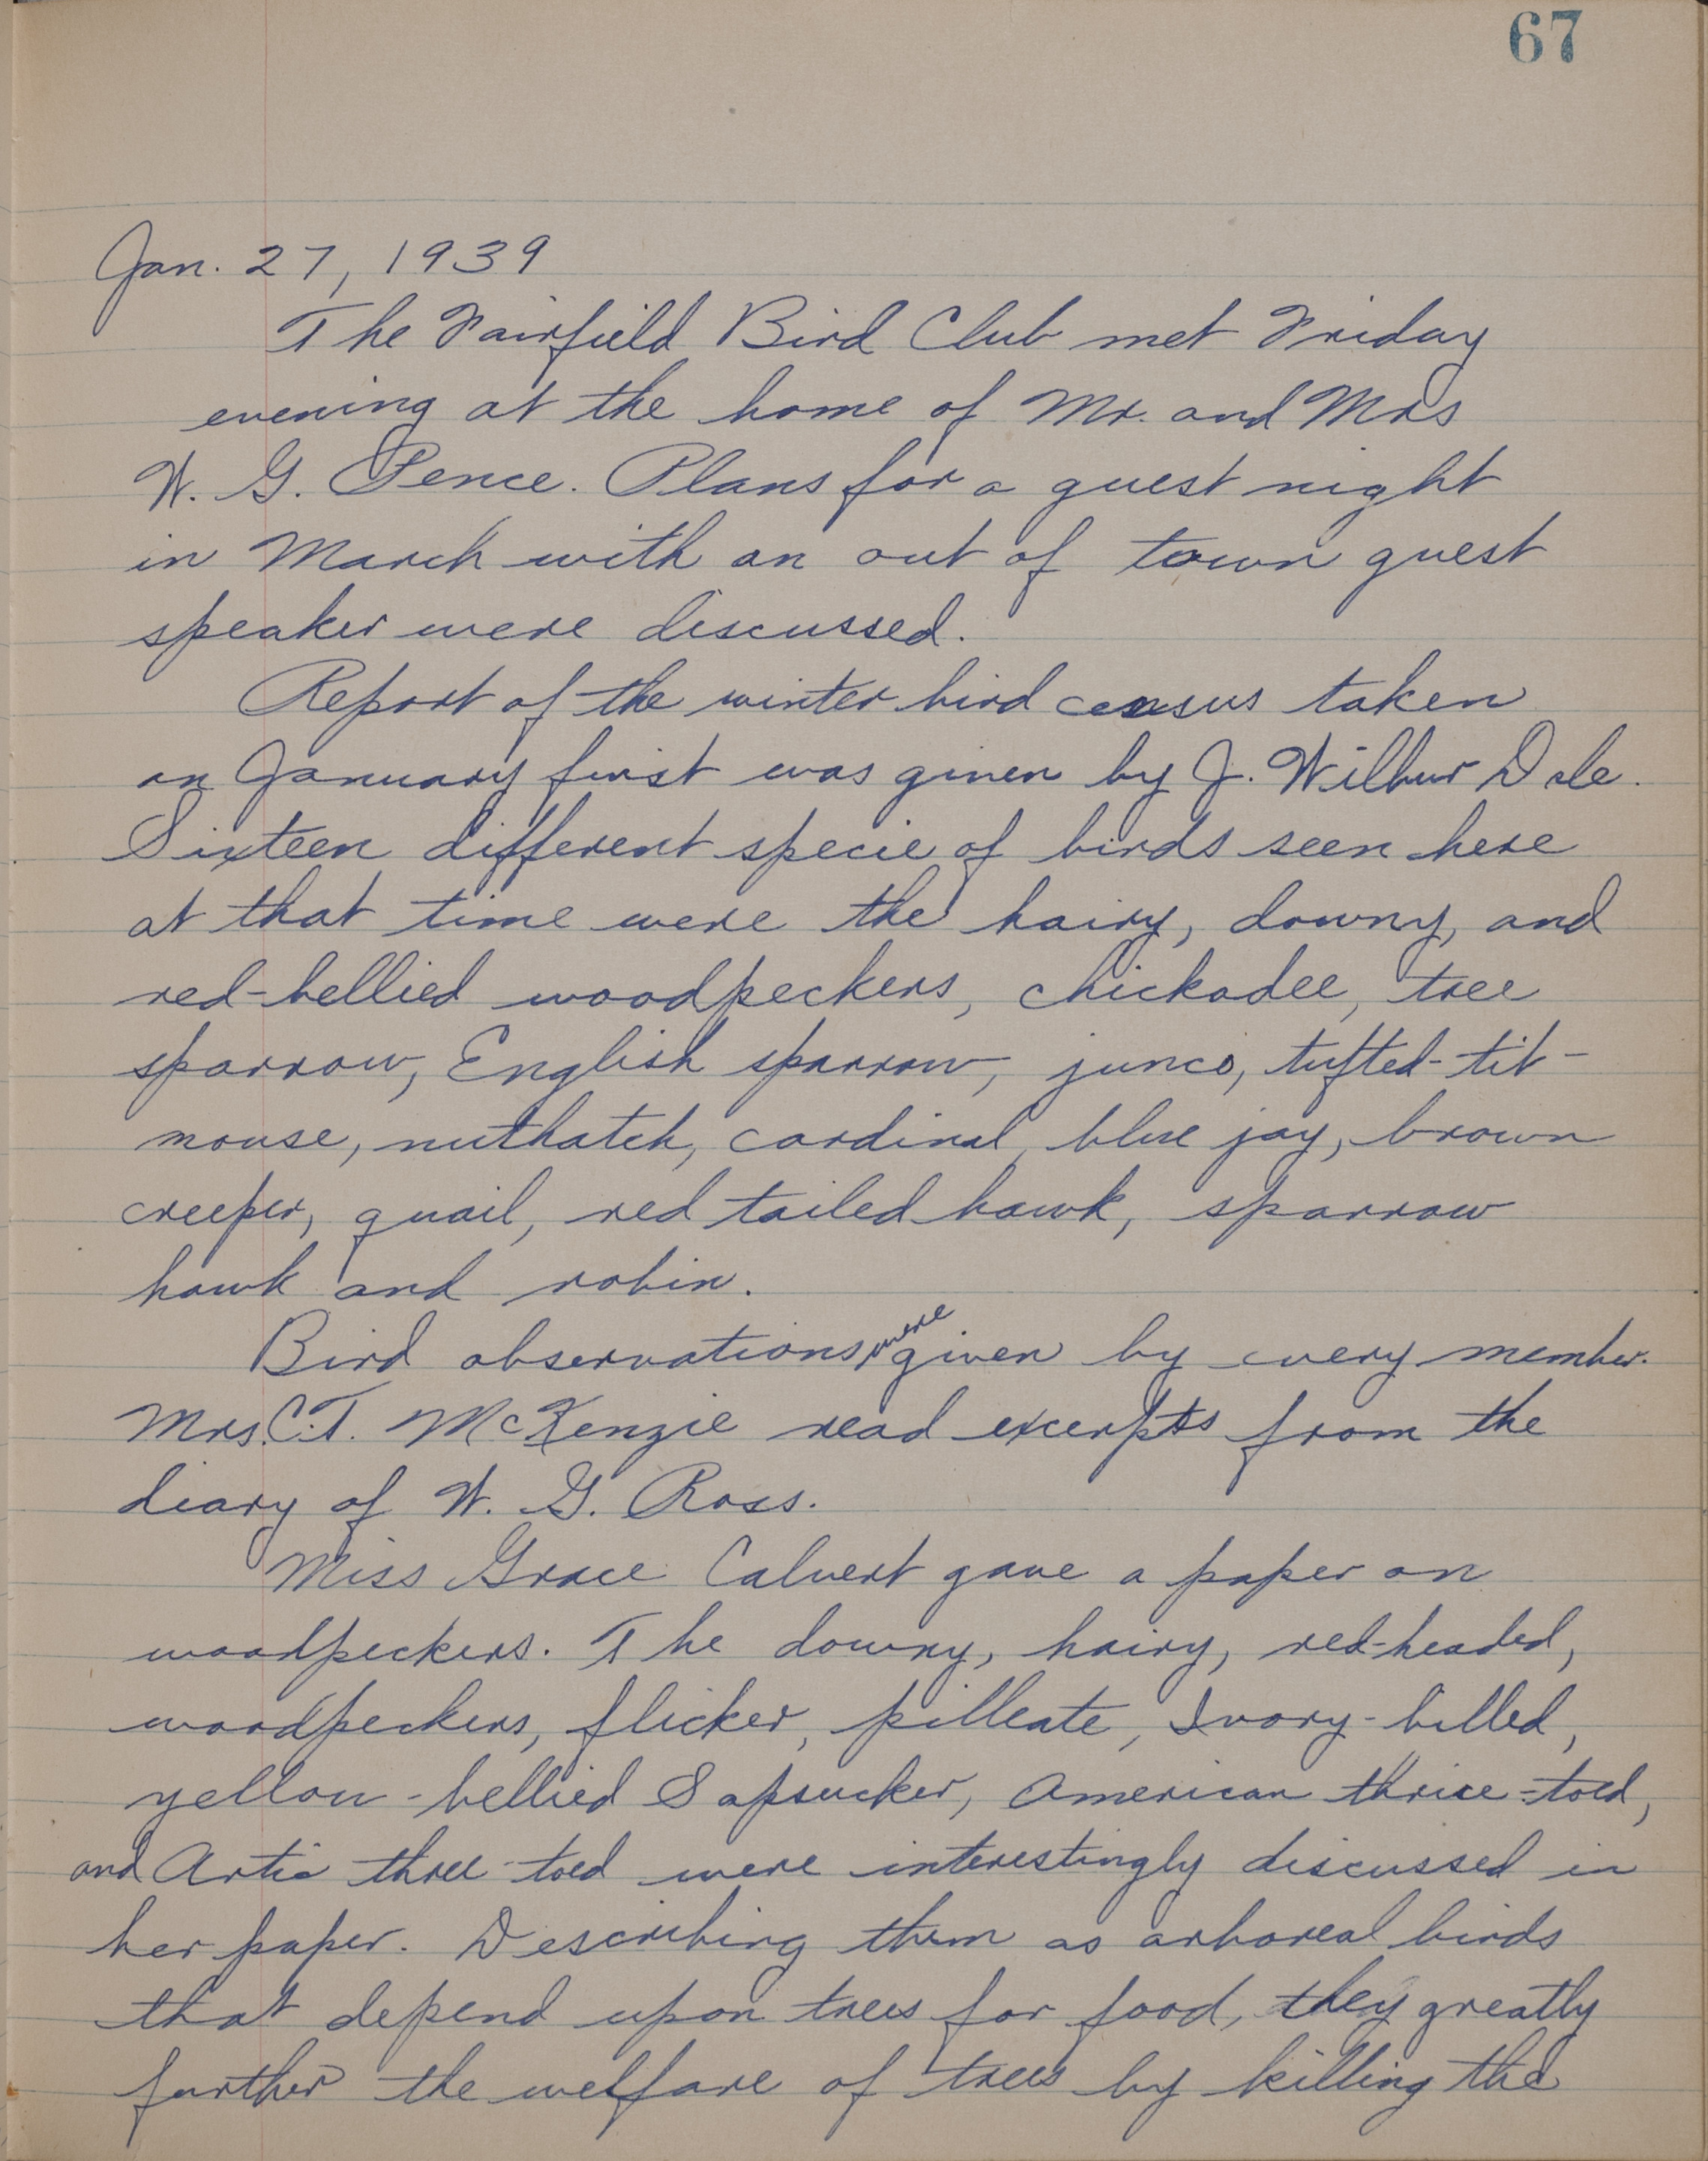 67
Jan. 27, 1939
The Fairfield Bird Club met Friday
evening at the home of Mr. and Mrs
W. G. Pence. Plans for a guest night
in March with an out of town guest
speaker were discussed.
Report of the winter bird census taken
on January first was given by J. Wilbur Dole.
Sixteen different specie of birds seen here
at that time were the hairy, downy, and
red-bellied woodpeckers, chickadee, tree
sparrow, English sparrow, junco, tufted-tit-
mouse, nuthatch, cardinal, blue jay, brown
creeper, quail, red tailed hawk, sparrow
hawk and robin.
Bird observations were given by every member.
Mrs. C.T. McKenzie read excerpts from the
diary of W. G. Ross.
Miss Grace Calvert gave a paper on
woodpeckers. The downy, hairy, red-headed,
woodpeckers, flicker, pilleate, Ivory-billed,
yellow-bellied Sapsucker, American thrice-toed,
and Artic three-toed were interestingly discussed in
her paper. Describing them as arboreal birds
that depend upon trees for food, they greatly
further the welfare of trees by killing the